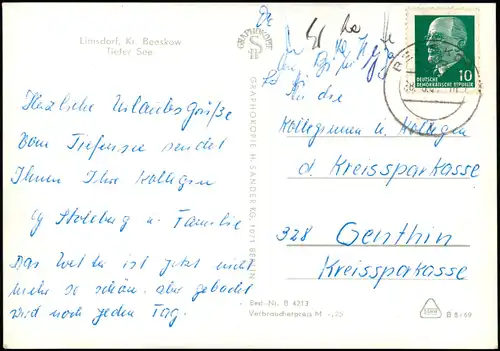 Limsdorf, Kr. Beeskow
Tiefer See
Herzliche Urlaubsgrüße
vom Tiefensee sendet
Ihnen Ihre Kollegen
u. Familie
Das Wetter ist jetzt nicht
mehr so schön, aber gebadet
wird noch jeden Tag.
GRAPHOKOPIE
GRAPHOKOPIE H. SANDER KG, 1071 BERLIN
An die
Kolleginnen u. Kollegen
d. Kreissparkasse
328 Genthin
Kreissparkasse
Best.-Nr. B 4213
Verbraucherpreis M
B 8/69
10
DEUTSCHE
DEMOKRATISCHE REPUBLIK